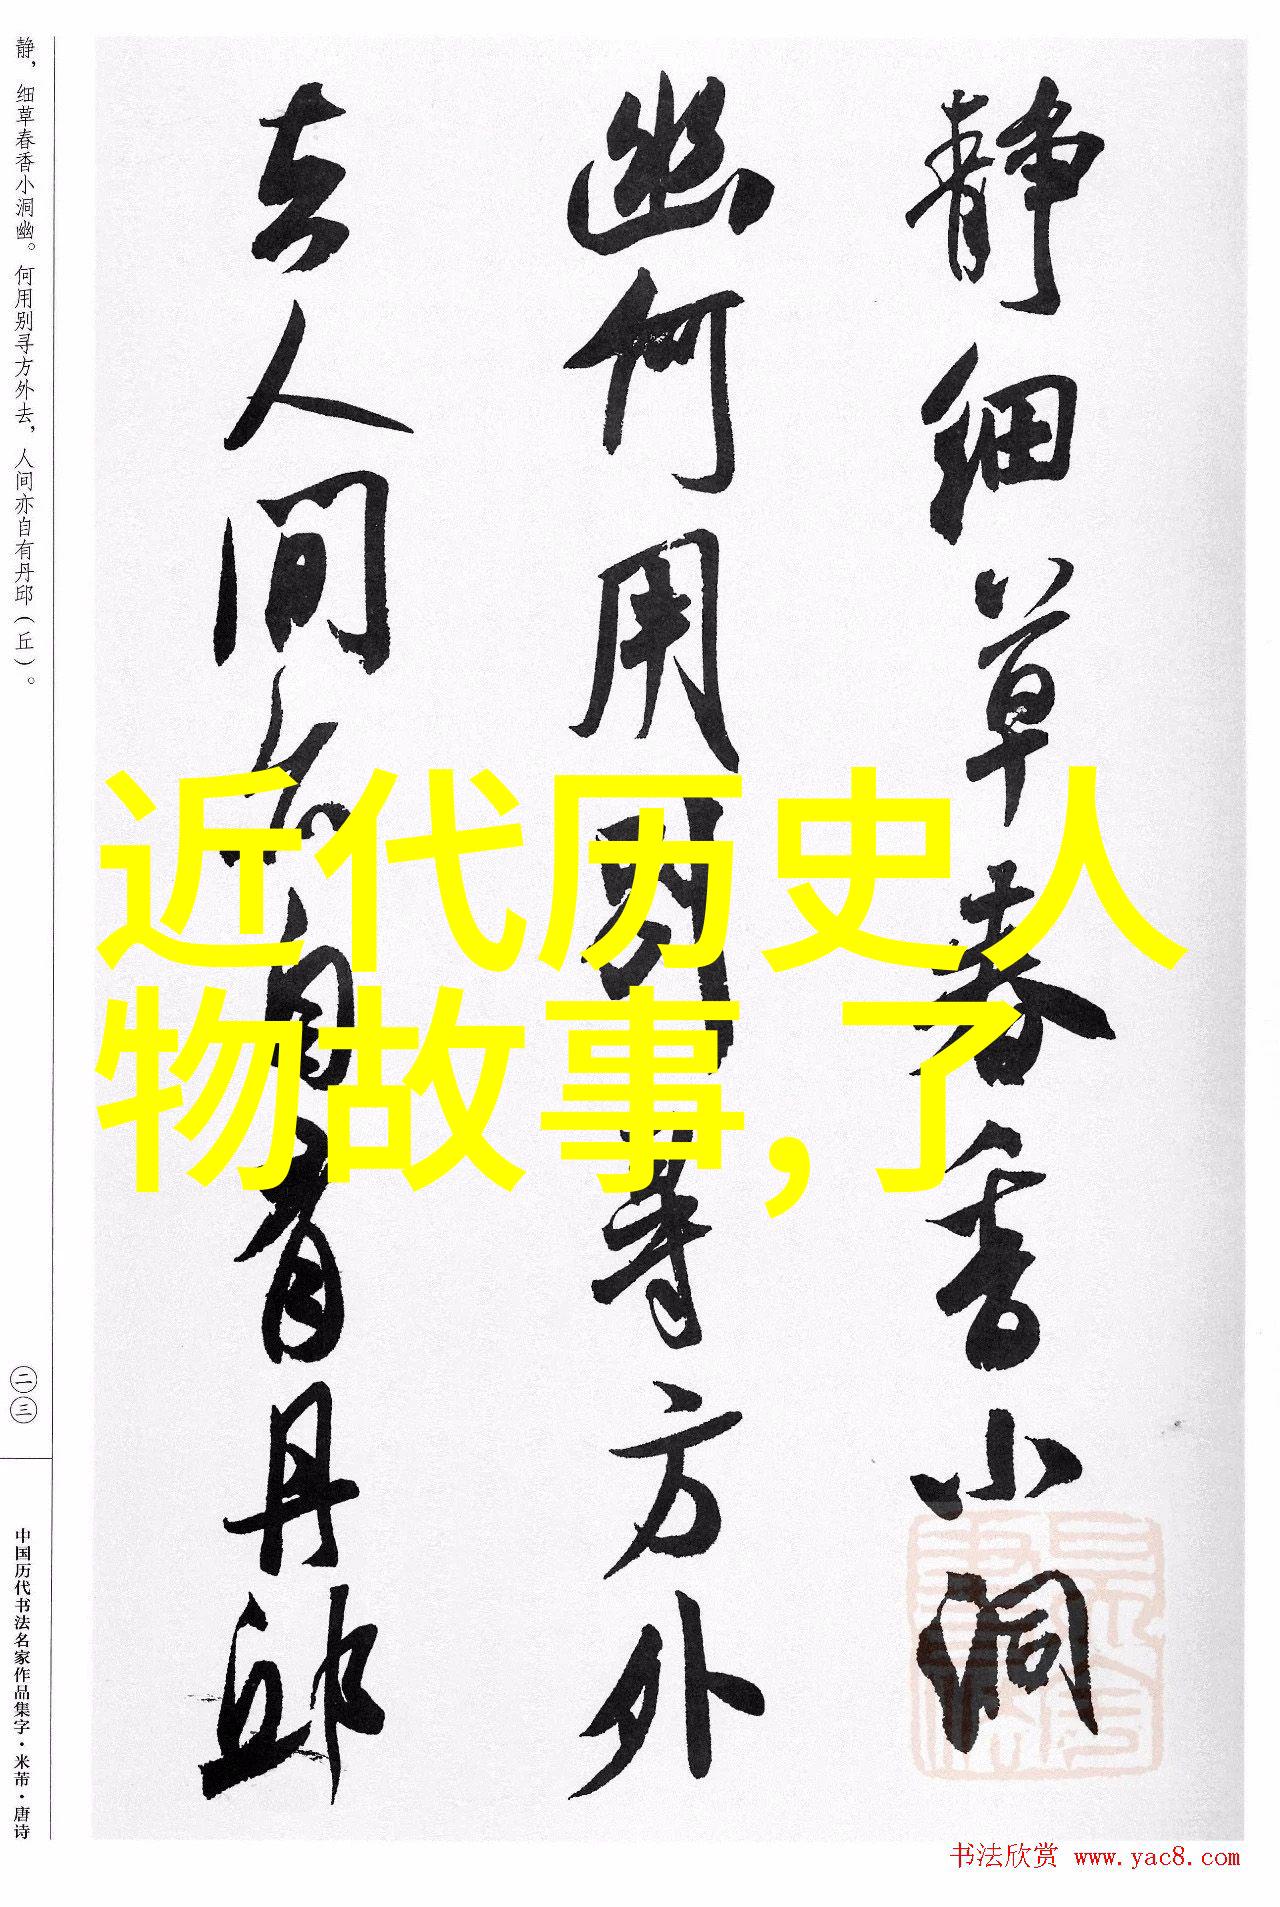 静细草春香小洞
幽何用别寻方外
去人间亦自有丹邱
近代历史人
物故事,了
静，细草春香小洞幽。何用别寻方外去，人间亦自有丹邱（丘）。
二三
中国历代书法名家作品集字·米芾·唐诗
书法欣赏 www.yac8.com